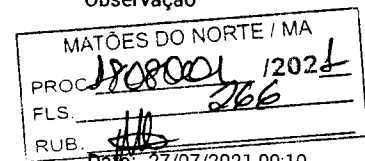 Observação
MATÕES DO NORTE / MA
PROC. 1808001 /2021
FLS. 266
RUB.
Data: 27/07/2021 09:10